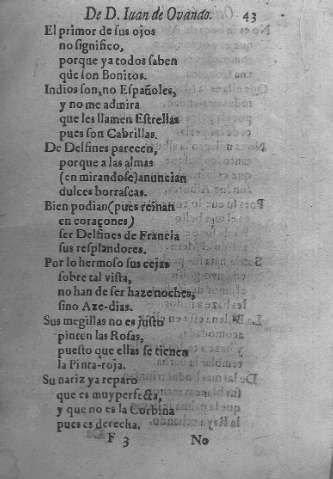 De D. Iuan de Ovando. 43
El primor de sus ojos
no significo,
porque ya todos saben
que son Bonitos.
Indios son, no Españoles,
y no me admira
que les llamen Estrellas
pues son Cabrillas.
De Delfines parecen,
porque a las almas
(en mirandose) anuncian
dulces borrascas.
Bien podian (pues reinan
en coraçones)
ser Delfines de Francia
sus resplandores.
Por lo hermoso sus cejas
sobre tal vista,
no han de ser hazenoches,
sino Aze-dias.
Sus megillas no es justo
pinten las Rosas,
puesto que ellas se tienen
la Pinta-roja.
Su nariz ya reparo
que es muy perfecta,
y que no es la Corbina
pues es derecha.
F 3 No